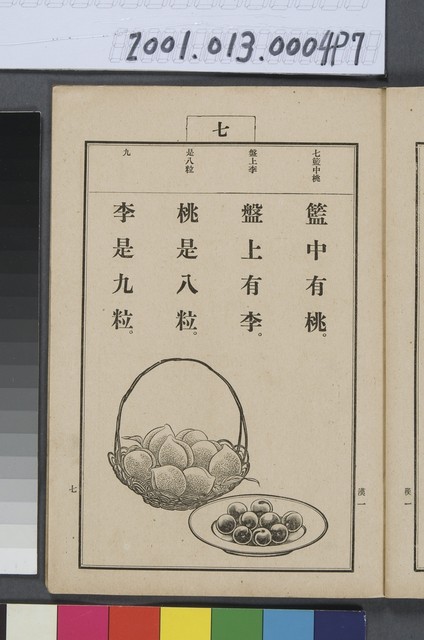 2001.013.0004P7
七
七籃中桃
盤上李
是八粒
九
籃中有桃。
盤上有李。
桃是八粒。
李是九粒。
七
漢一
漢一